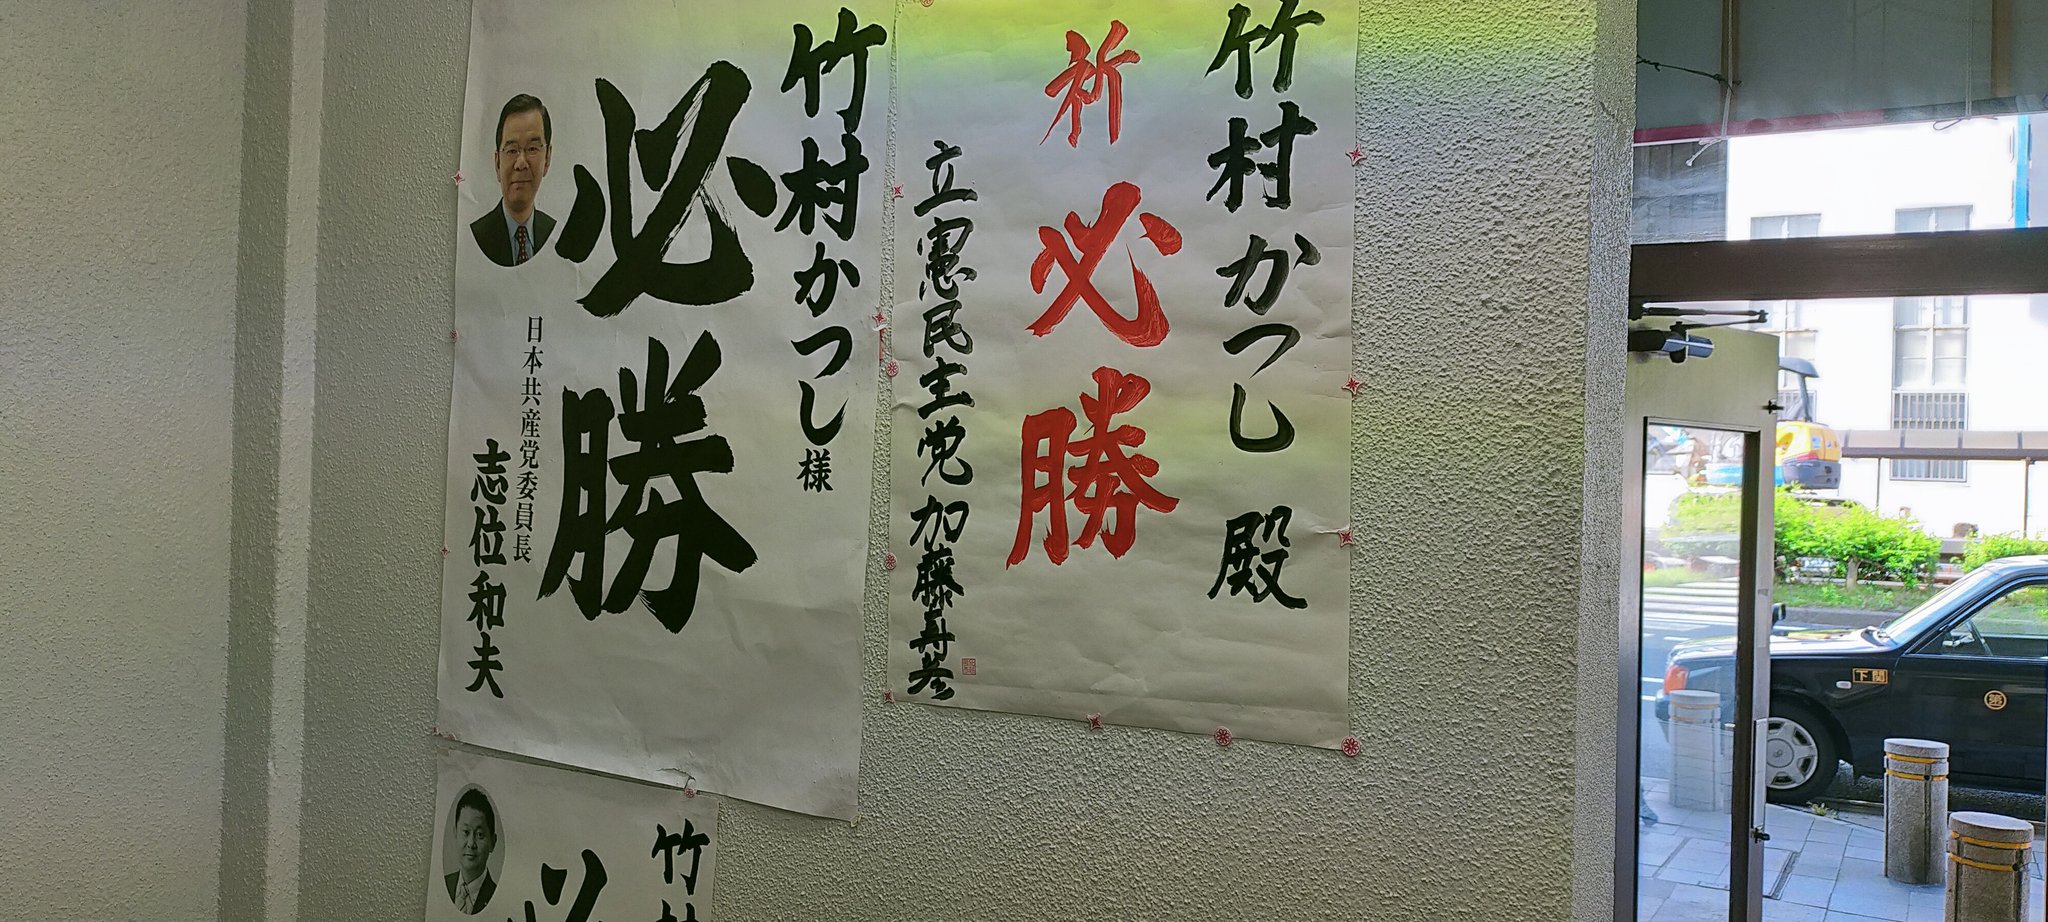 竹村かつし殿
祈必勝
立憲民主党加藤寿彦
竹村かつし様
必勝
日本共産党委員長
志位和夫
竹村
必
下関